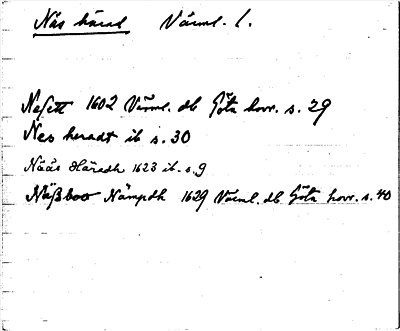 Näs härad Värml. l.
Nesett 1602 Värml. db Göta hovr. s. 29
Nes heradt ib s. 30
Nääs Häradh 1623 ib. s. 9
Näßboo Nämpdh 1629 Värml. db Göta hovr. s. 40